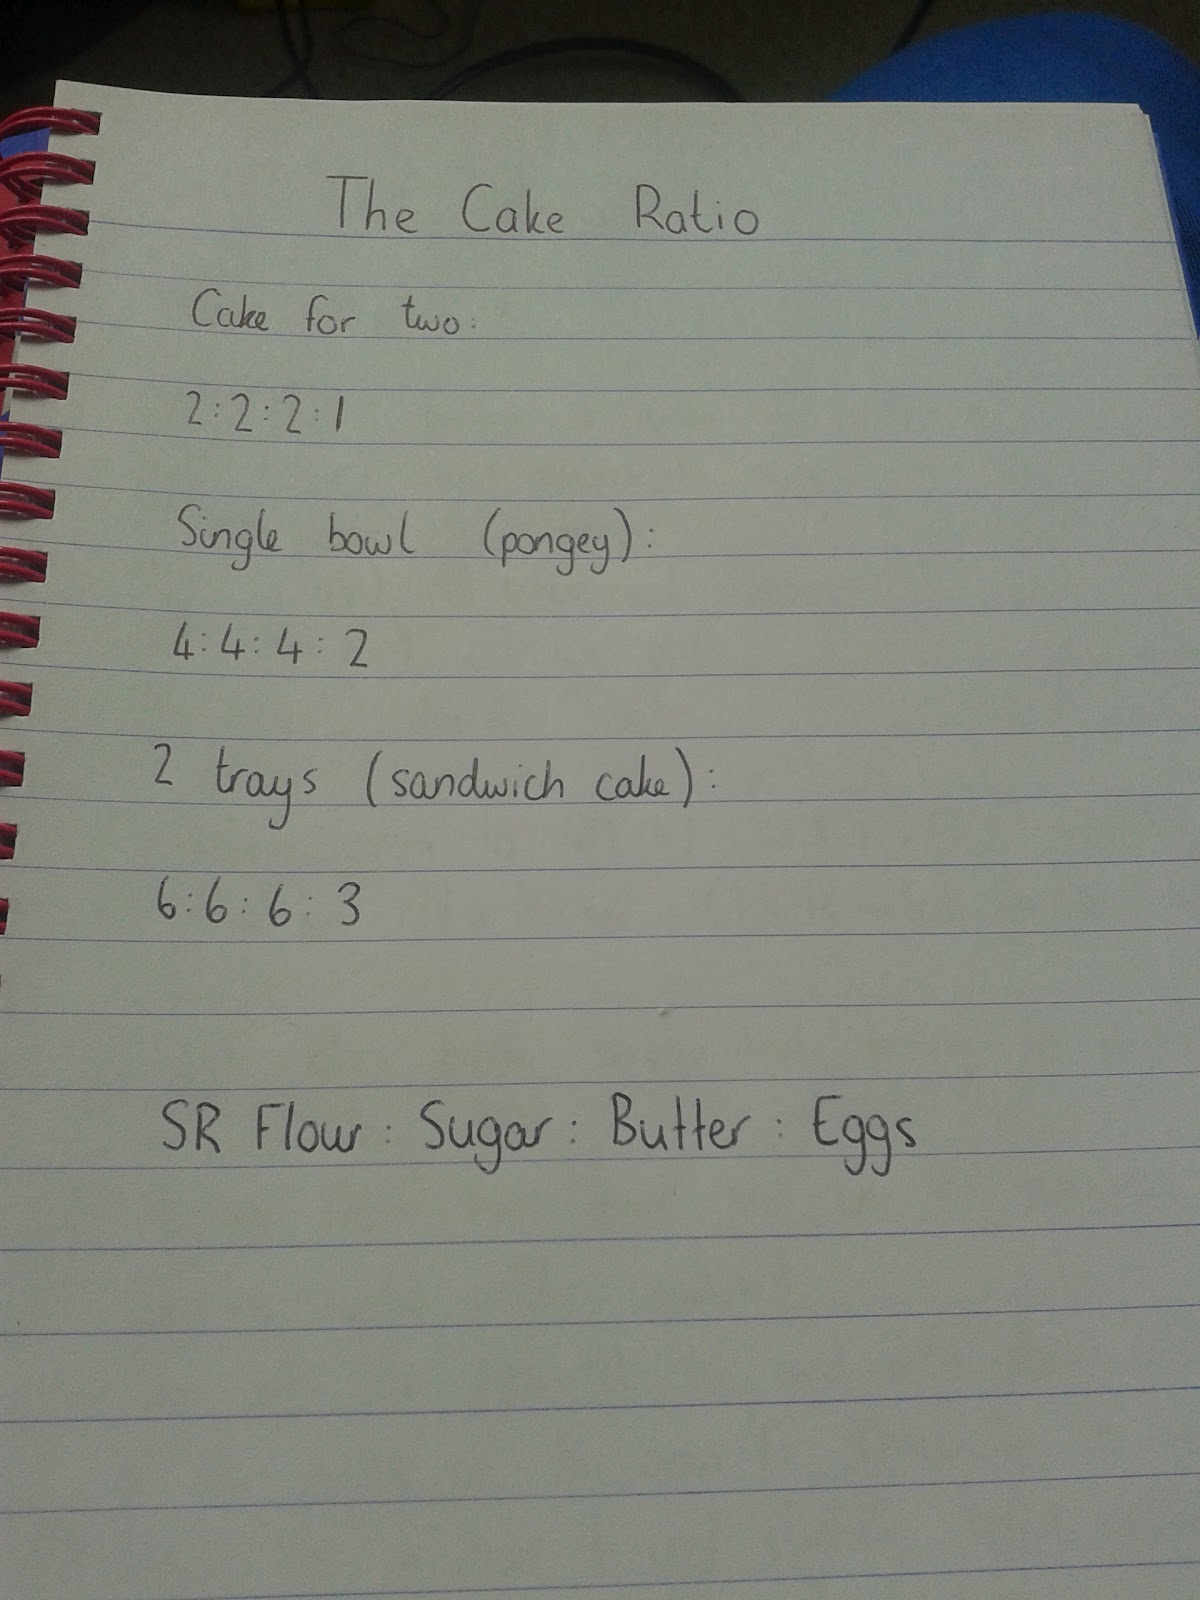 The Cake Ratio
Cake for two:
2:2:2:1
Single bowl (pongey):
4:4:4:2
2 trays (sandwich cake):
6:6:6:3
SR Flour: Sugar: Butter: Eggs